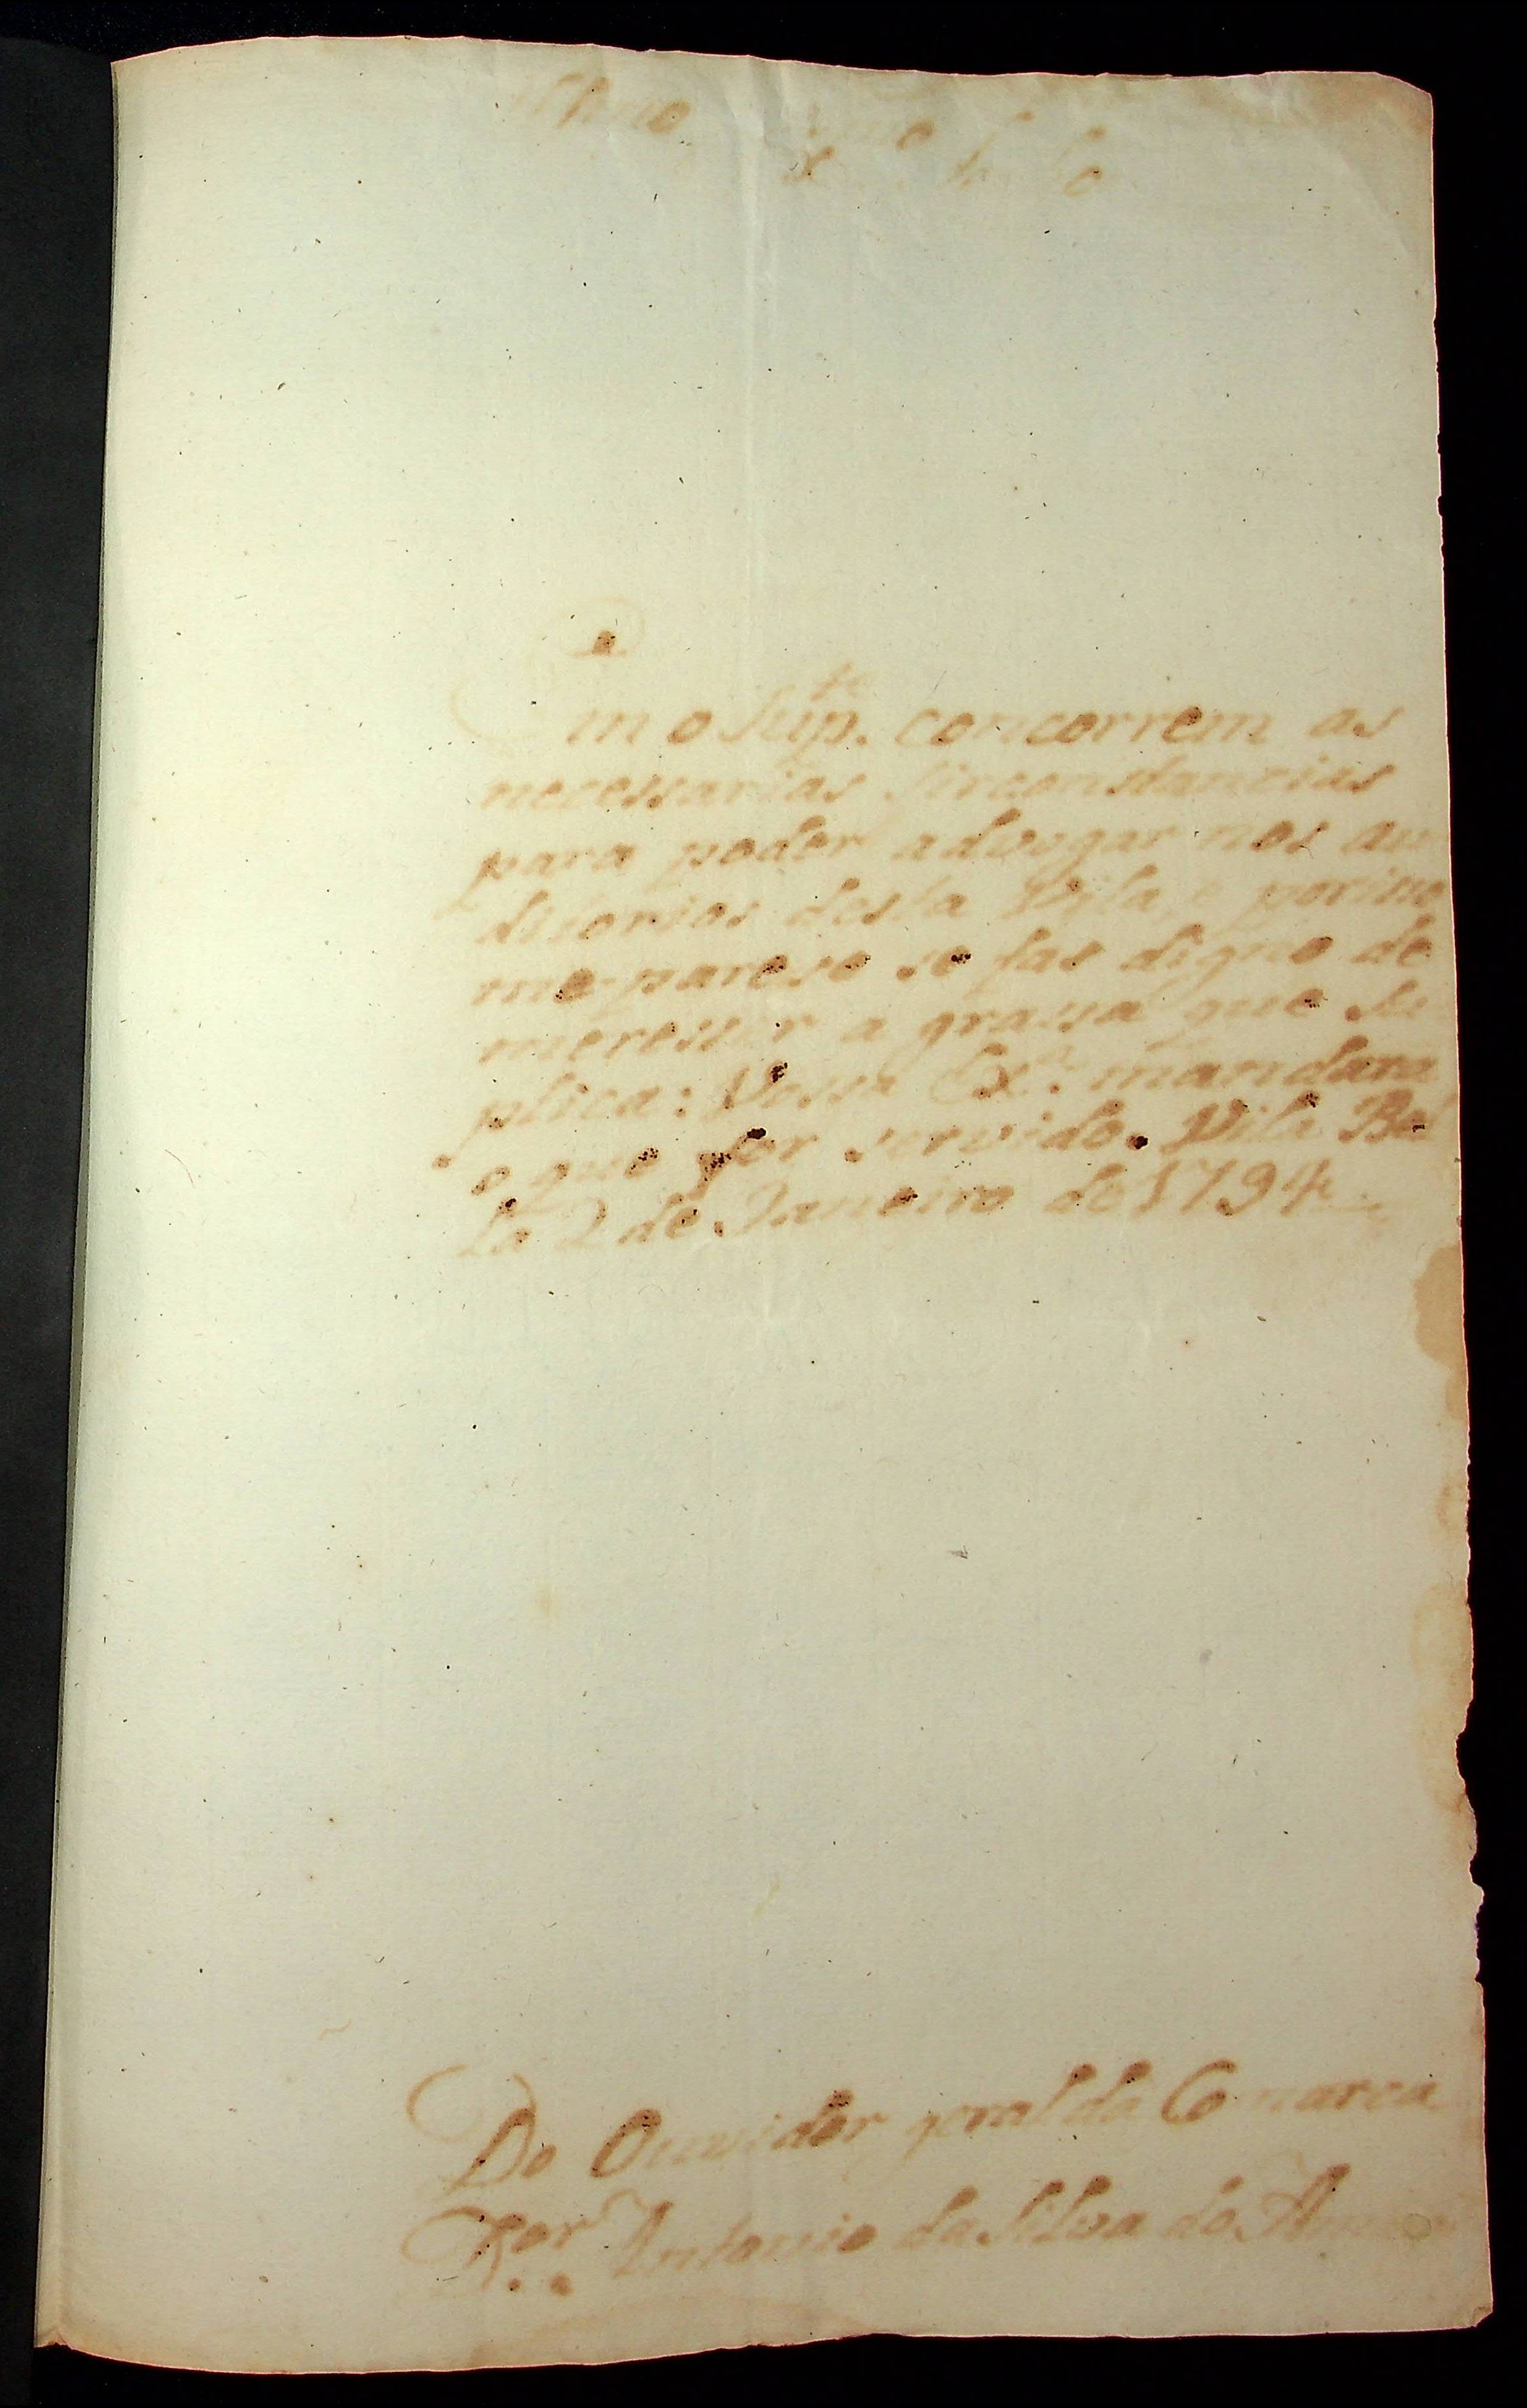 Em o Sup.te concorrem as
necessarias sirconstancias
para poder advogar nos au
ditorios desta Vila, e por isso
me-parese se fas digno de
meresser a grassa que su
plica: Vossa Ex.a mandara
o que for servido. Vila Bel
la 2 de Janeiro de 1794
Do Ouvidor geral da Comarca
Antonio da Silva do